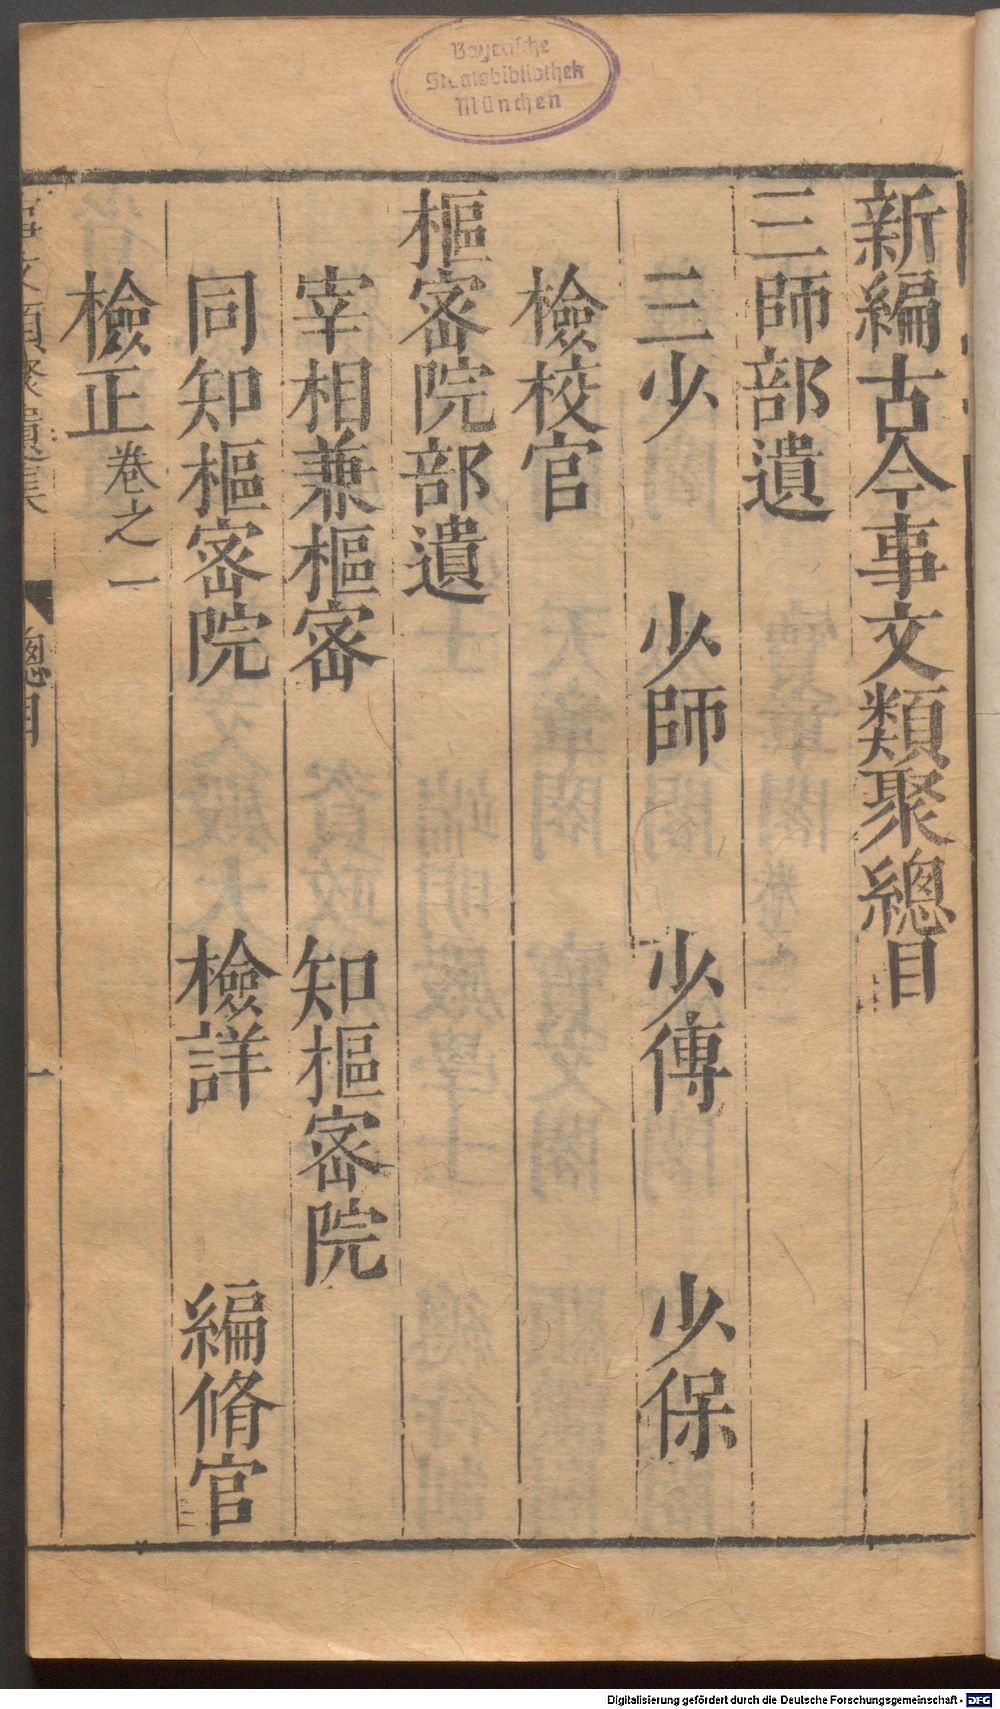 Bayerische
Staatsbibliothek
München
新編古今事文類聚總目
三師部遺
三少　少師　少傅　少保
檢校官
樞密院部遺
宰相兼樞密　知樞密院
同知樞密院　檢詳　編脩官
檢正 卷之一
事文類聚遺集　總目　一
Digitalisierung gefördert durch die Deutsche Forschungsgemeinschaft - DFG